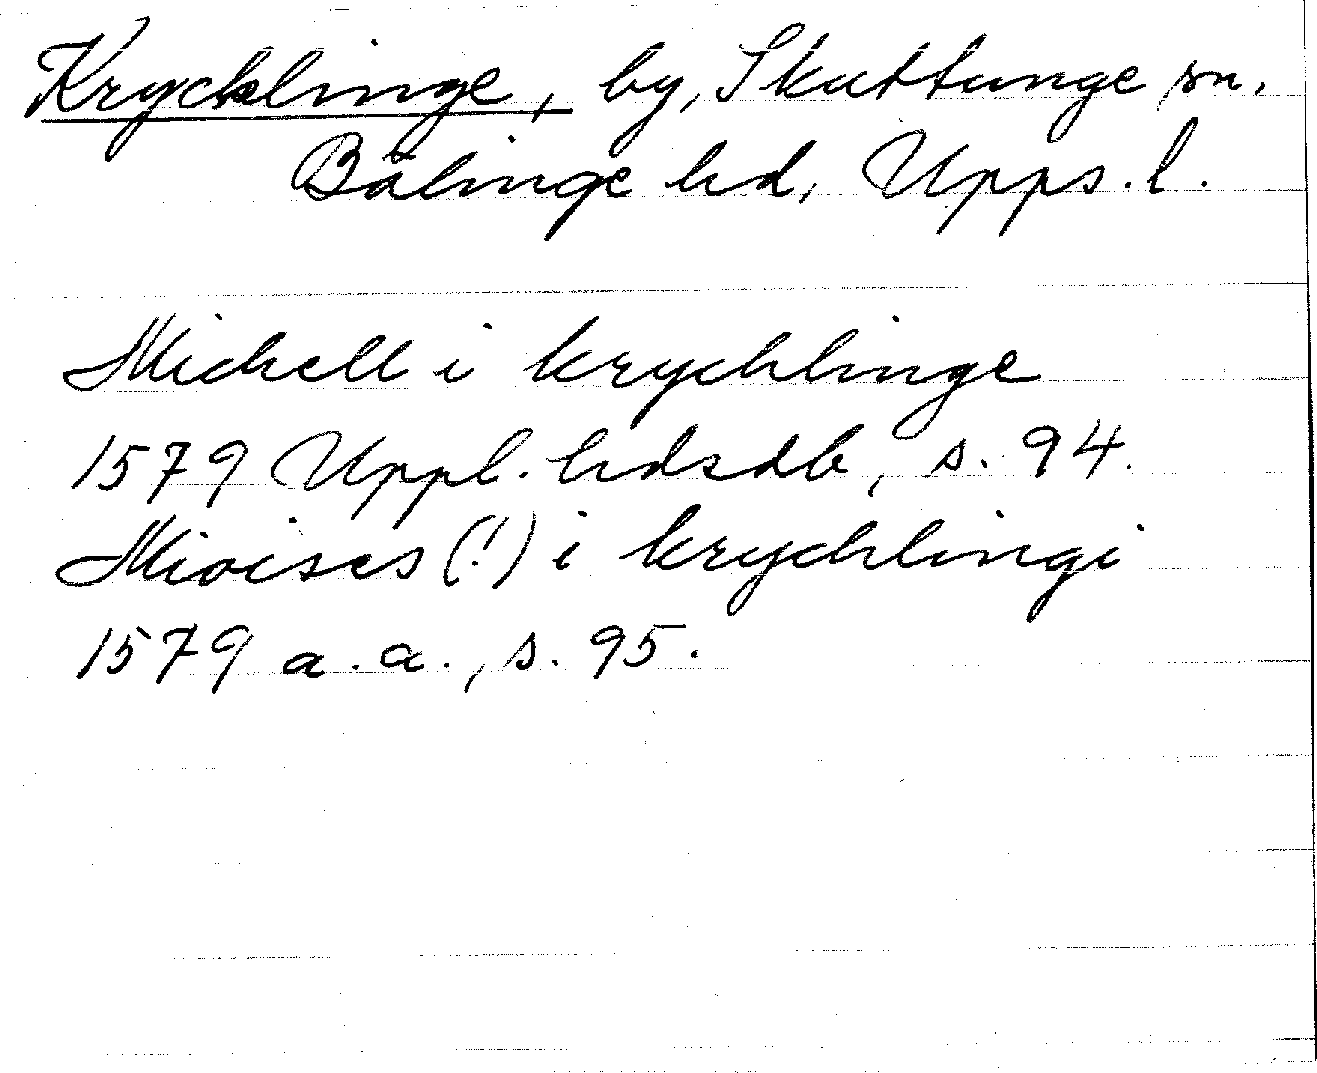 Krycklinge, by, Skuttunge sn.
Bälinge hd, Upps. l.
Michell i krychlinge
1579 Uppl. hdsdb, s. 94.
Mioises (!) i krychlingi
1579 a. a., s. 95.